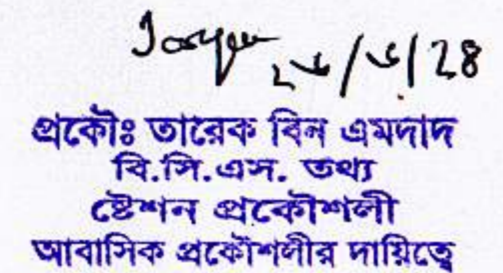 ২৮/৮/২৪
প্রকৌঃ তারেক বিন এমদাদ
বি.সি.এস. তথ্য
ষ্টেশন প্রকৌশলী
আবাসিক প্রকৌশলীর দায়িত্বে